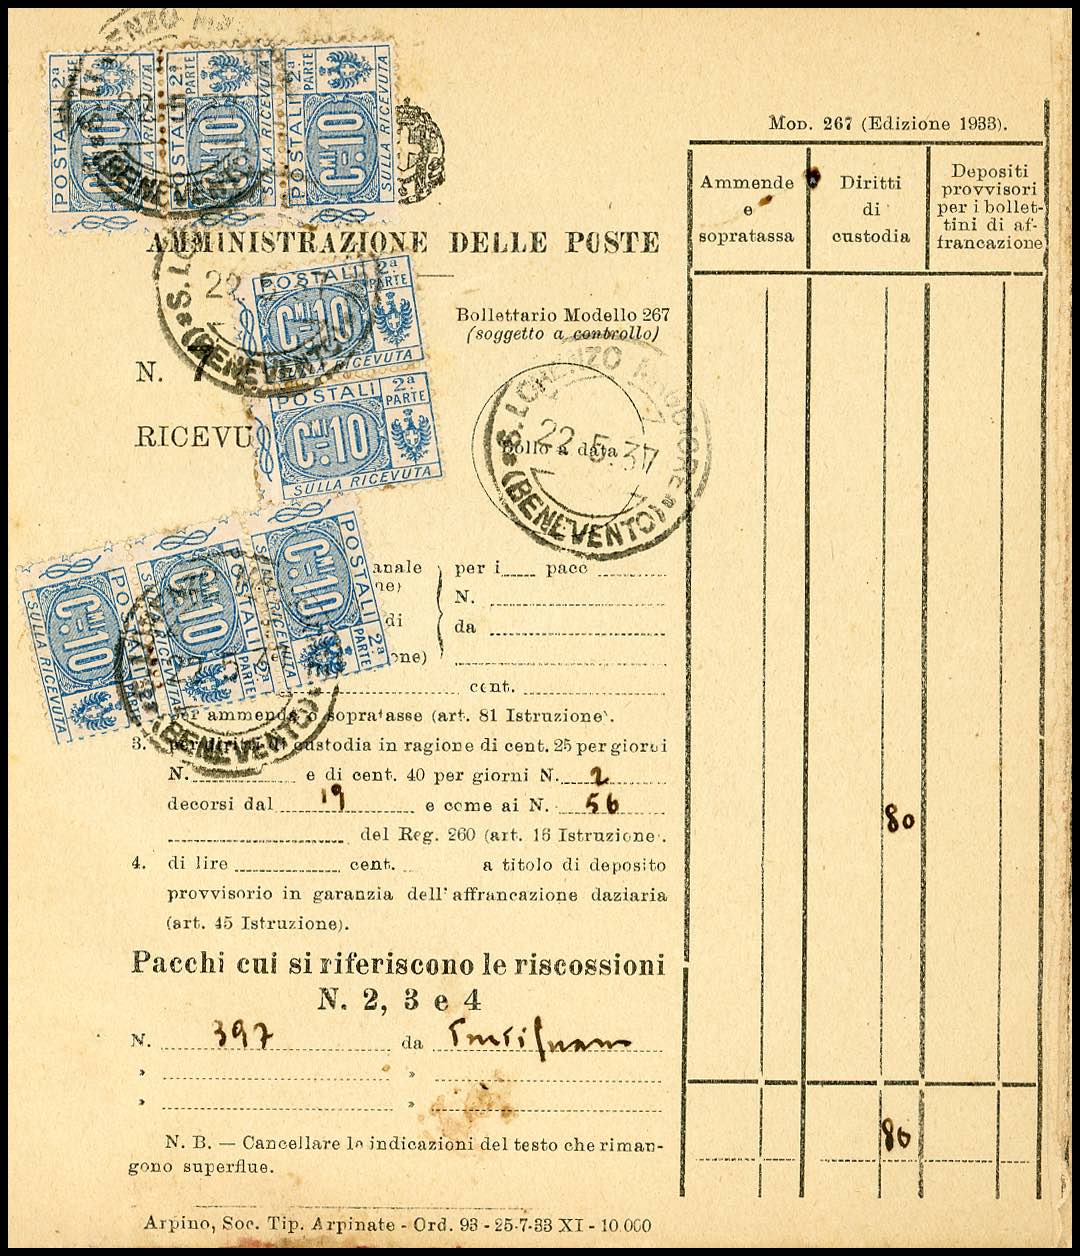 POSTALI 2ª PARTE Cᴹᴵ 10 SULLA RICEVUTA
POSTALI 2ª PARTE Cᴹᴵ 10 SULLA RICEVUTA
POSTALI 2ª PARTE Cᴹᴵ 10 SULLA RICEVUTA
(BENEVENTO)
Mod. 267 (Edizione 1933).
Ammende e sopratassa
Diritti di custodia
Depositi provvisori per i bollettini di affrancazione
AMMINISTRAZIONE DELLE POSTE
POSTALI 2ª PARTE Cᴹᴵ 10 SULLA RICEVUTA
S. LO
22 5
(BENEVENTO)
Bollettario Modello 267
(soggetto a controllo)
N. 7
POSTALI 2ª PARTE Cᴹᴵ 10 SULLA RICEVUTA
RICEVU
S. LORENZO MAGGIORE
Bollo a data
22.5.37
(BENEVENTO)
POSTALI 2ª PARTE Cᴹᴵ 10 SULLA RICEVUTA
POSTALI 2ª PARTE Cᴹᴵ 10 SULLA RICEVUTA
POSTALI 2ª PARTE Cᴹᴵ 10 SULLA RICEVUTA
(BENEVENTO)
anale per i pacc
ne) N.
di da
one)
cent.
per ammenda o sopratasse (art. 81 Istruzione).
3. per diritti di custodia in ragione di cent. 25 per giorni
N. e di cent. 40 per giorni N. 2
decorsi dal 19 e come ai N. 56
80
del Reg. 260 (art. 16 Istruzione).
4. di lire cent. a titolo di deposito
provvisorio in garanzia dell'affrancazione daziaria
(art. 45 Istruzione).
Pacchi cui si riferiscono le riscossioni
N. 2, 3 e 4
N. 397 da
» »
» »
80
N. B. — Cancellare le indicazioni del testo che riman-
gono superflue.
Arpino, Soc. Tip. Arpinate - Ord. 93 - 25-7-33 XI - 10 000